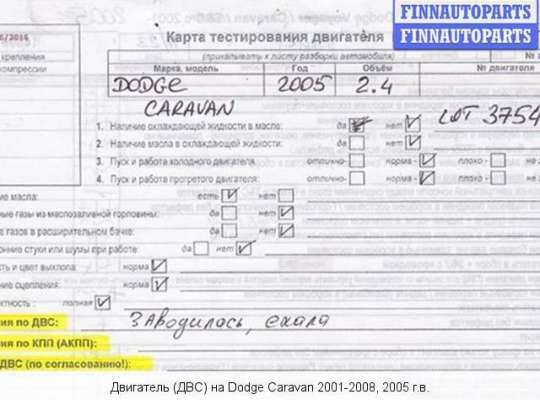 FINNAUTOPARTS
FINNAUTOPARTS
6/2016
Карта тестирования двигателя
(прикалывать к листу разборки автомобиля)
крепления
компрессии
Марка, модель Год Объём № двигателя
DODGE 2005 2.4
CARAVAN
LOT 3754
1. Наличие охлаждающей жидкости в масле: да нет
2. Наличие масла в охлаждающей жидкости: да нет
3. Пуск и работа холодного двигателя: отлично- норма - плохо -
4. Пуск и работа прогретого двигателя: отлично- норма - плохо -
масла: есть нет
газы из маслозаливной горловины: да нет
газов в расширительном бачке: да нет
стуки или шумы при работе: да нет
и цвет выхлопа: норма
сцепления: норма
полная
по ДВС: заводилась, ехала
по КПП (АКПП):
ДВС (по согласованию!):
Двигатель (ДВС) на Dodge Caravan 2001-2008, 2005 г.в.